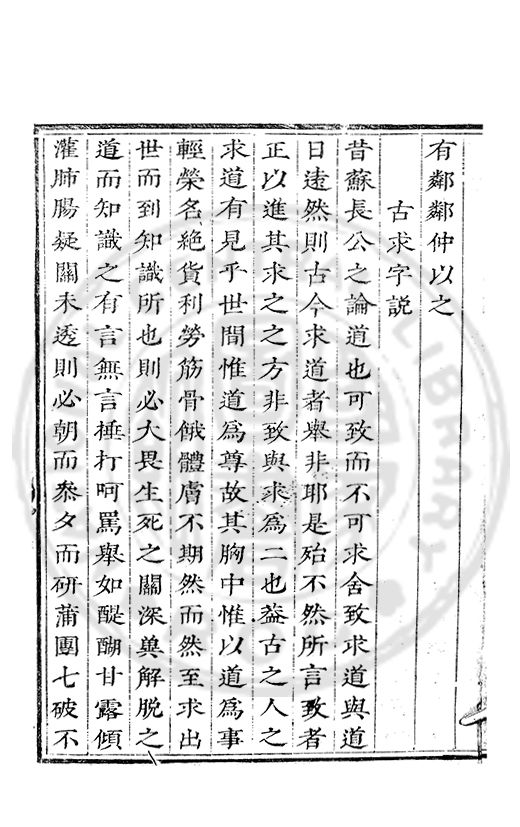 有鄰鄰仲以之
古求字説
昔蘇長公之論道也可致而不可求舍致求道與道
日遠然則古今求道者舉非耶是殆不然所言致者
正以進其求之之方非致與求爲二也益古之人之
求道有見乎世間惟道爲尊故其胸中惟以道爲事
輕榮名絶貨利勞筋骨餓體膚不期然而然至求出
世而到知識所也則必大畏生死之關深兾解脫之
道而知識之有言無言捶打呵罵舉如醍醐甘露傾
灌肺腸疑關未透則必朝而叅夕而研蒲團七破不
LIBRARY